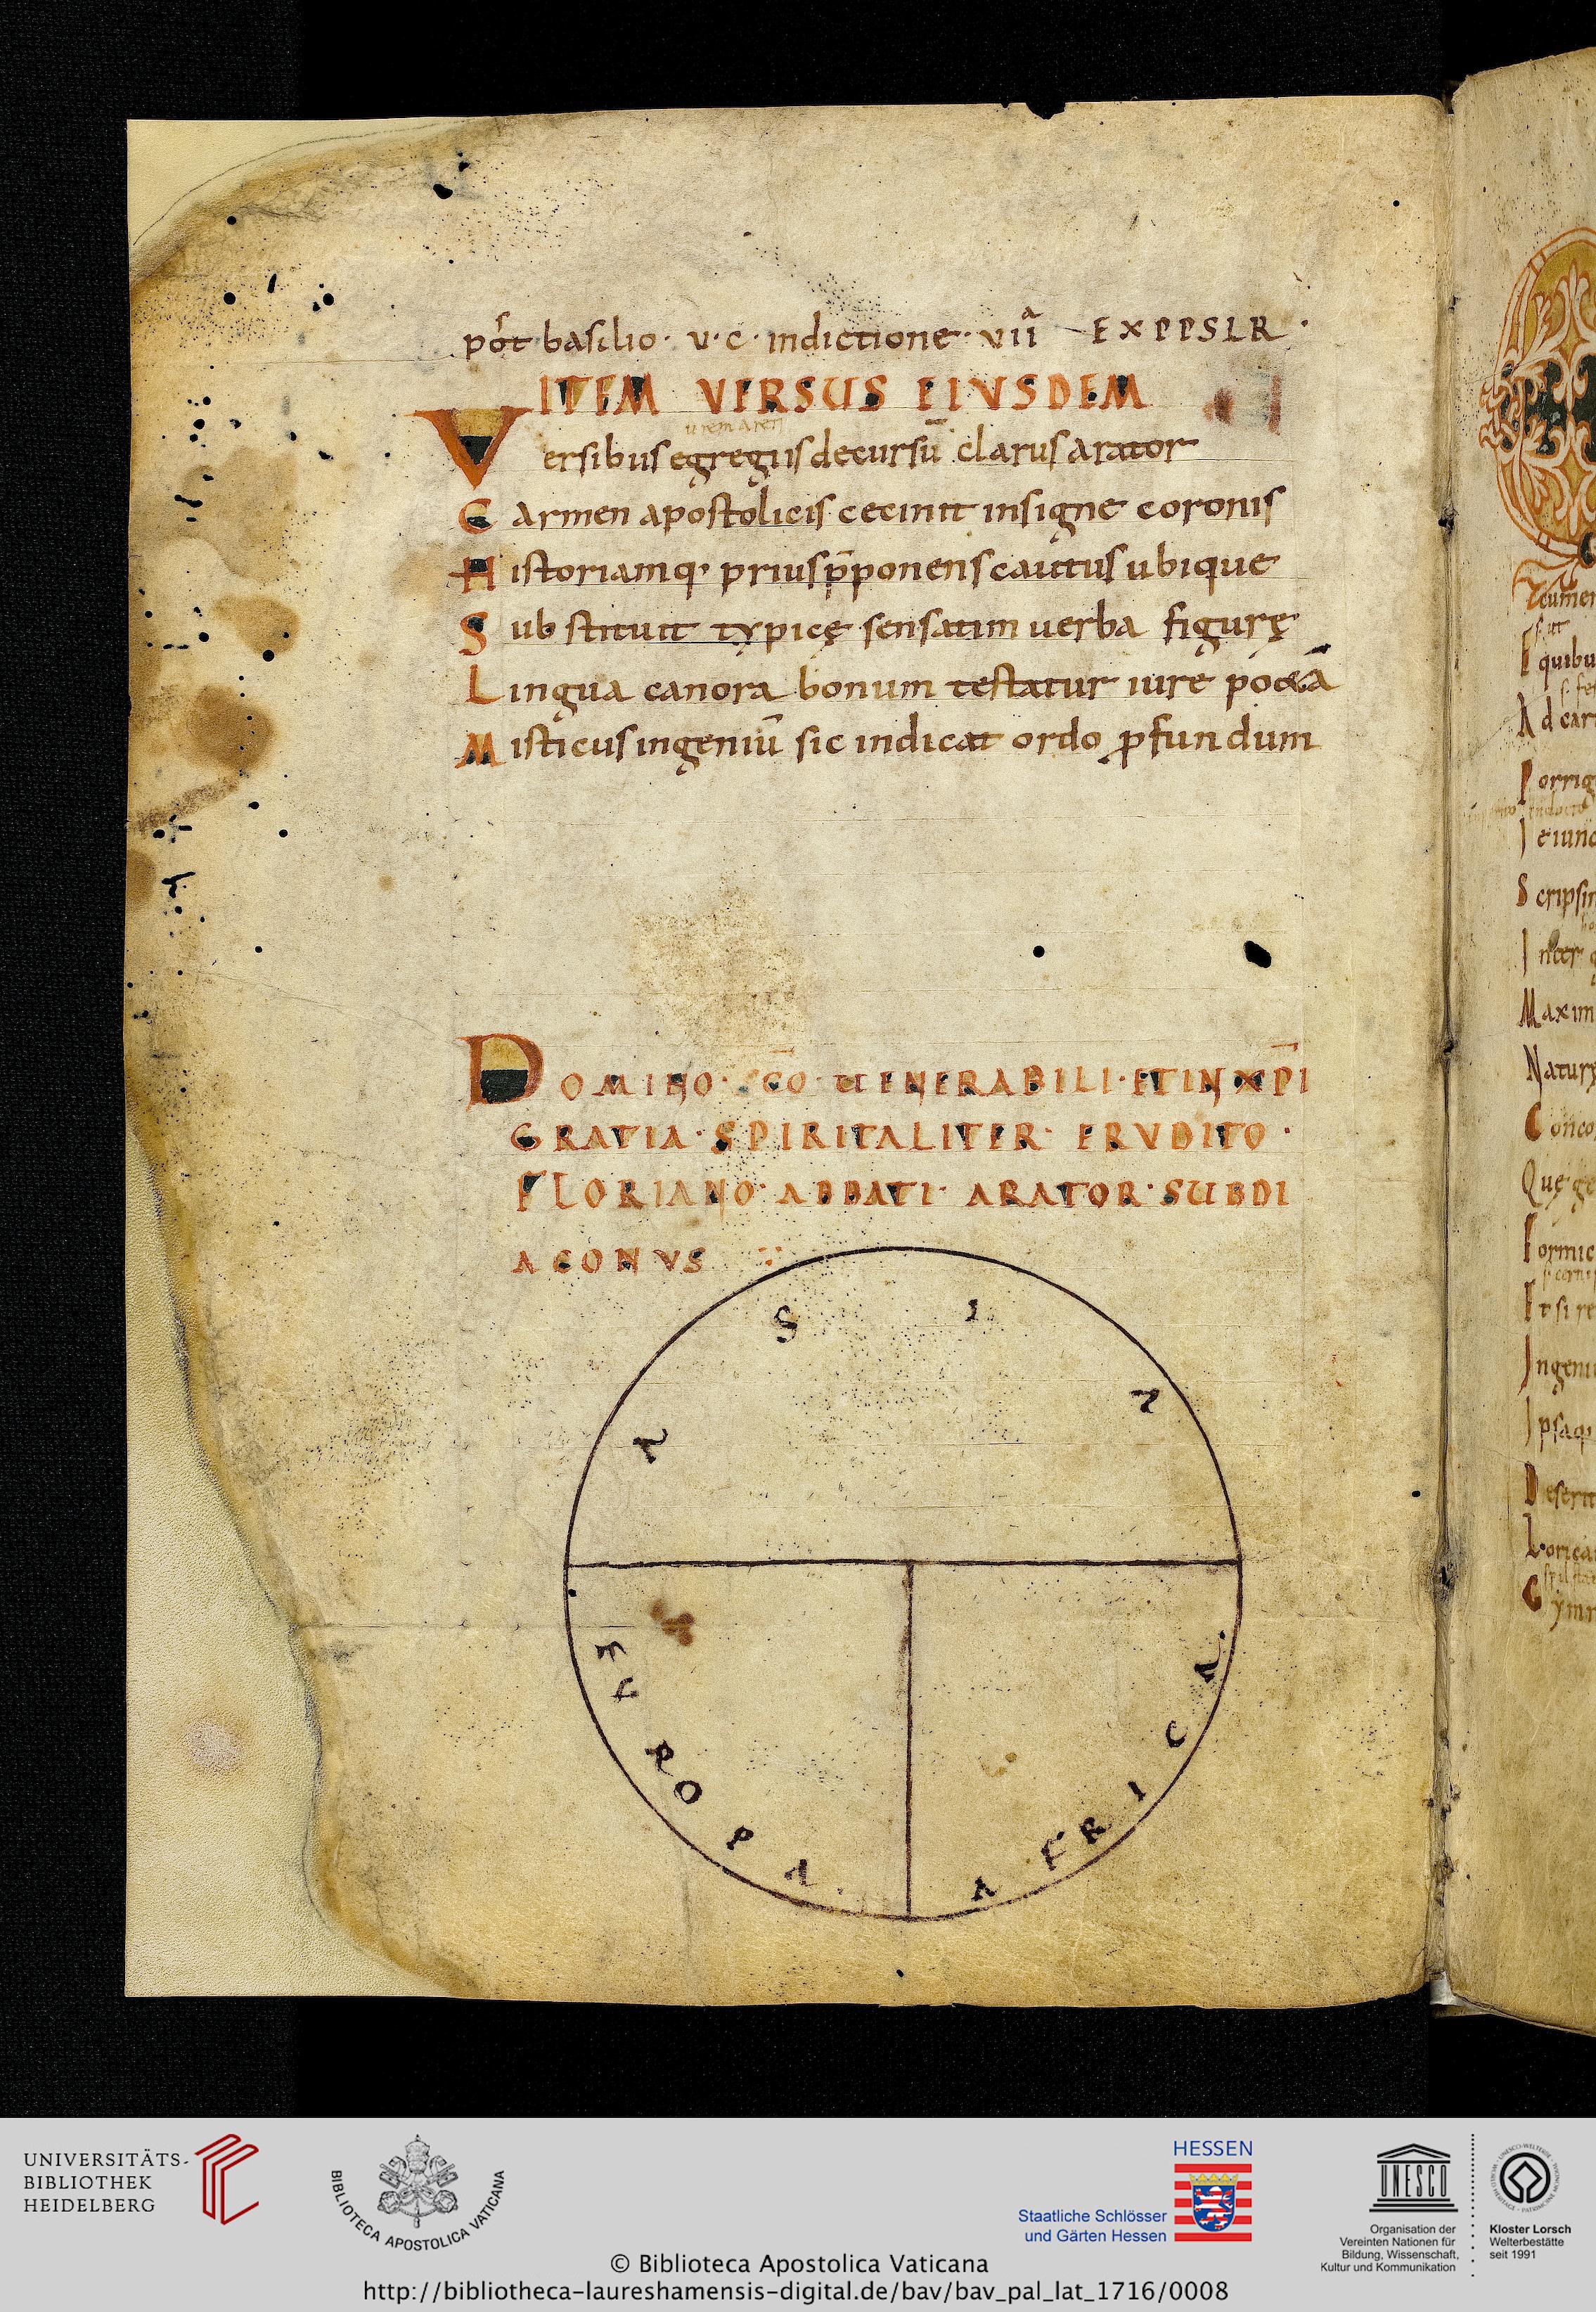 pośt basilio· v·c· indictione· vii̇ᵃ EXPPSLR·
ITEM VERSUS EIVSDEM
Versibus egregiis decursū clarus arator
Carmen apostolicis cecinit insigne coronis
Historiamq· prius p̄ponens cautus ubique
Substituit typicę sensatim uerba figurę
Lingua canora bonum testatur iure po&ā
Misticus ingeniū sic indicat ordo ꝓfundum
DOMINO· S̄C̄O· UENERABILI· ET IN X̄P̄I
GRATIA· SPIRITALITER· ERVDITO·
FLORIANO· ABBATI· ARATOR· SUBDI
ACONVS
ASIA
EVROPA·
AFRICA
cumen
quibu
Ad car
Porrig
Ieiunc
Scripsin
Inter
Maxim
Natury
Conco
Quę ge
Formic
Et si re
Ingeni
Ipsaq·
Deserit
Lorica
Cymr
UNIVERSITÄTS-
BIBLIOTHEK
HEIDELBERG
BIBLIOTECA APOSTOLICA VATICANA
HESSEN
Staatliche Schlösser
und Gärten Hessen
UNESCO
Organisation der
Vereinten Nationen für
Bildung, Wissenschaft,
Kultur und Kommunikation
Kloster Lorsch
Welterbestätte
seit 1991
© Biblioteca Apostolica Vaticana
http://bibliotheca-laureshamensis-digital.de/bav/bav_pal_lat_1716/0008